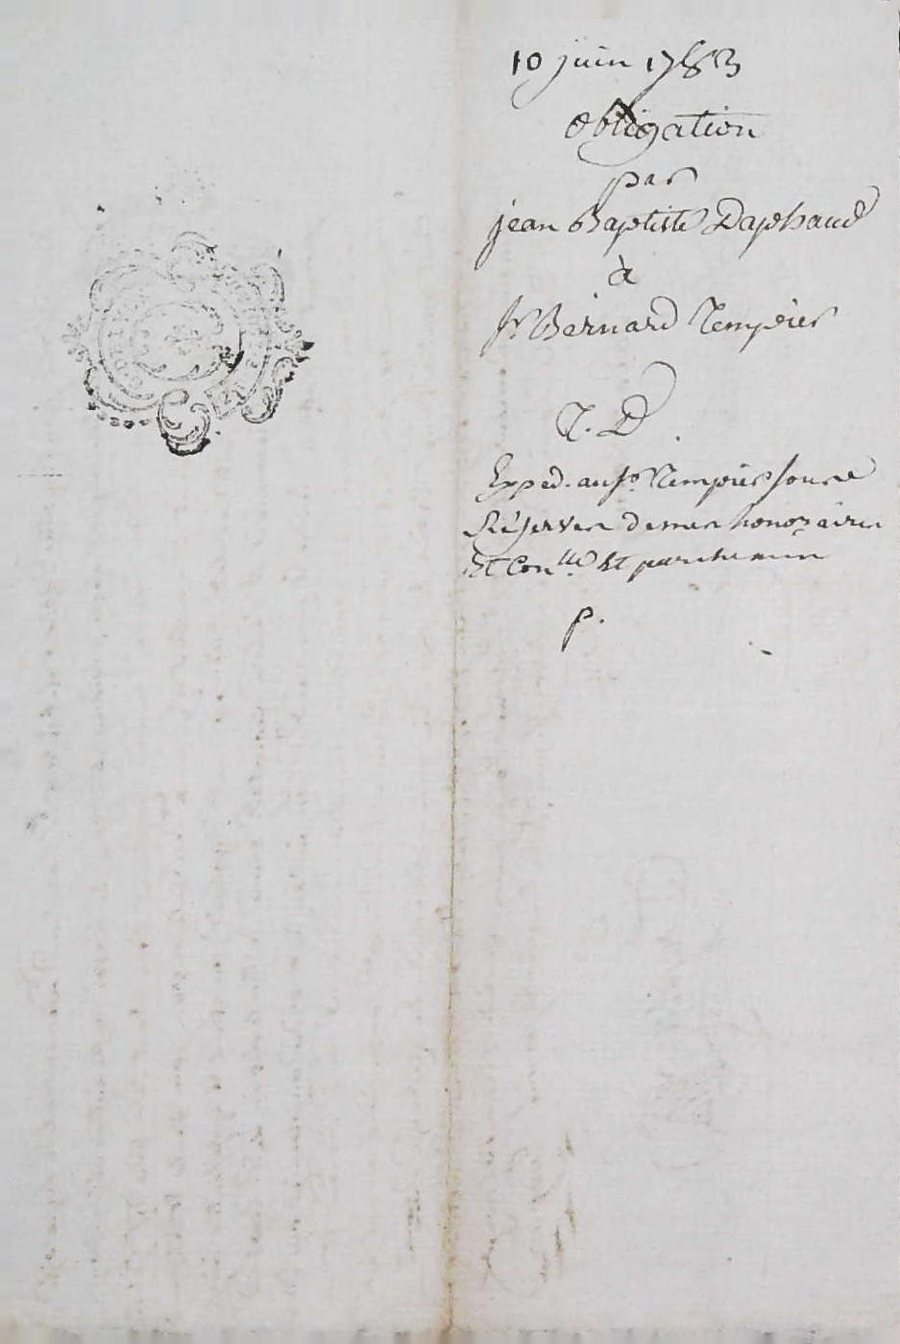 10 juin 1783
obligation
par
jean Baptiste Daphaud
à
Sr Bernard Tempier
T. D.
Exped. au sr Tempier sous le
Réserves de mes honoraires
Et Con.lle Et parchemin
p.